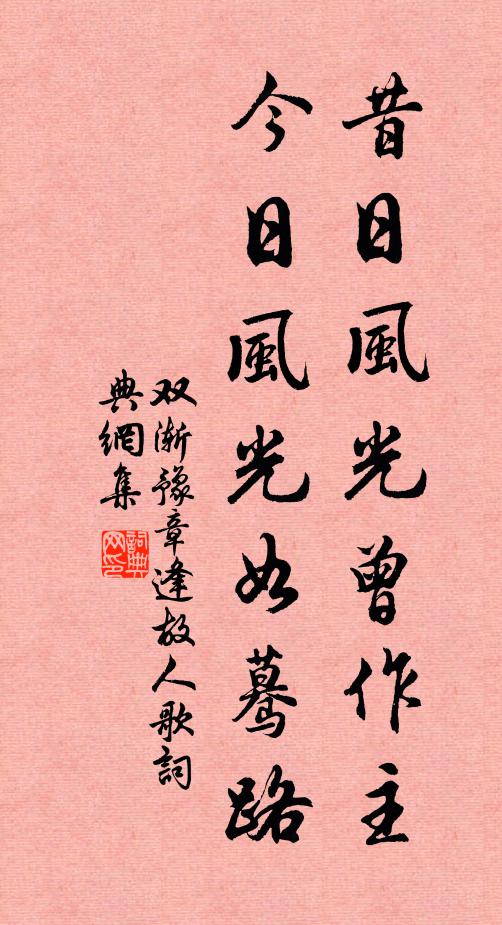 昔日風光曾作主
今日風光如驀路
双漸豫章逢故人歌詞
典網集
詞典
网印